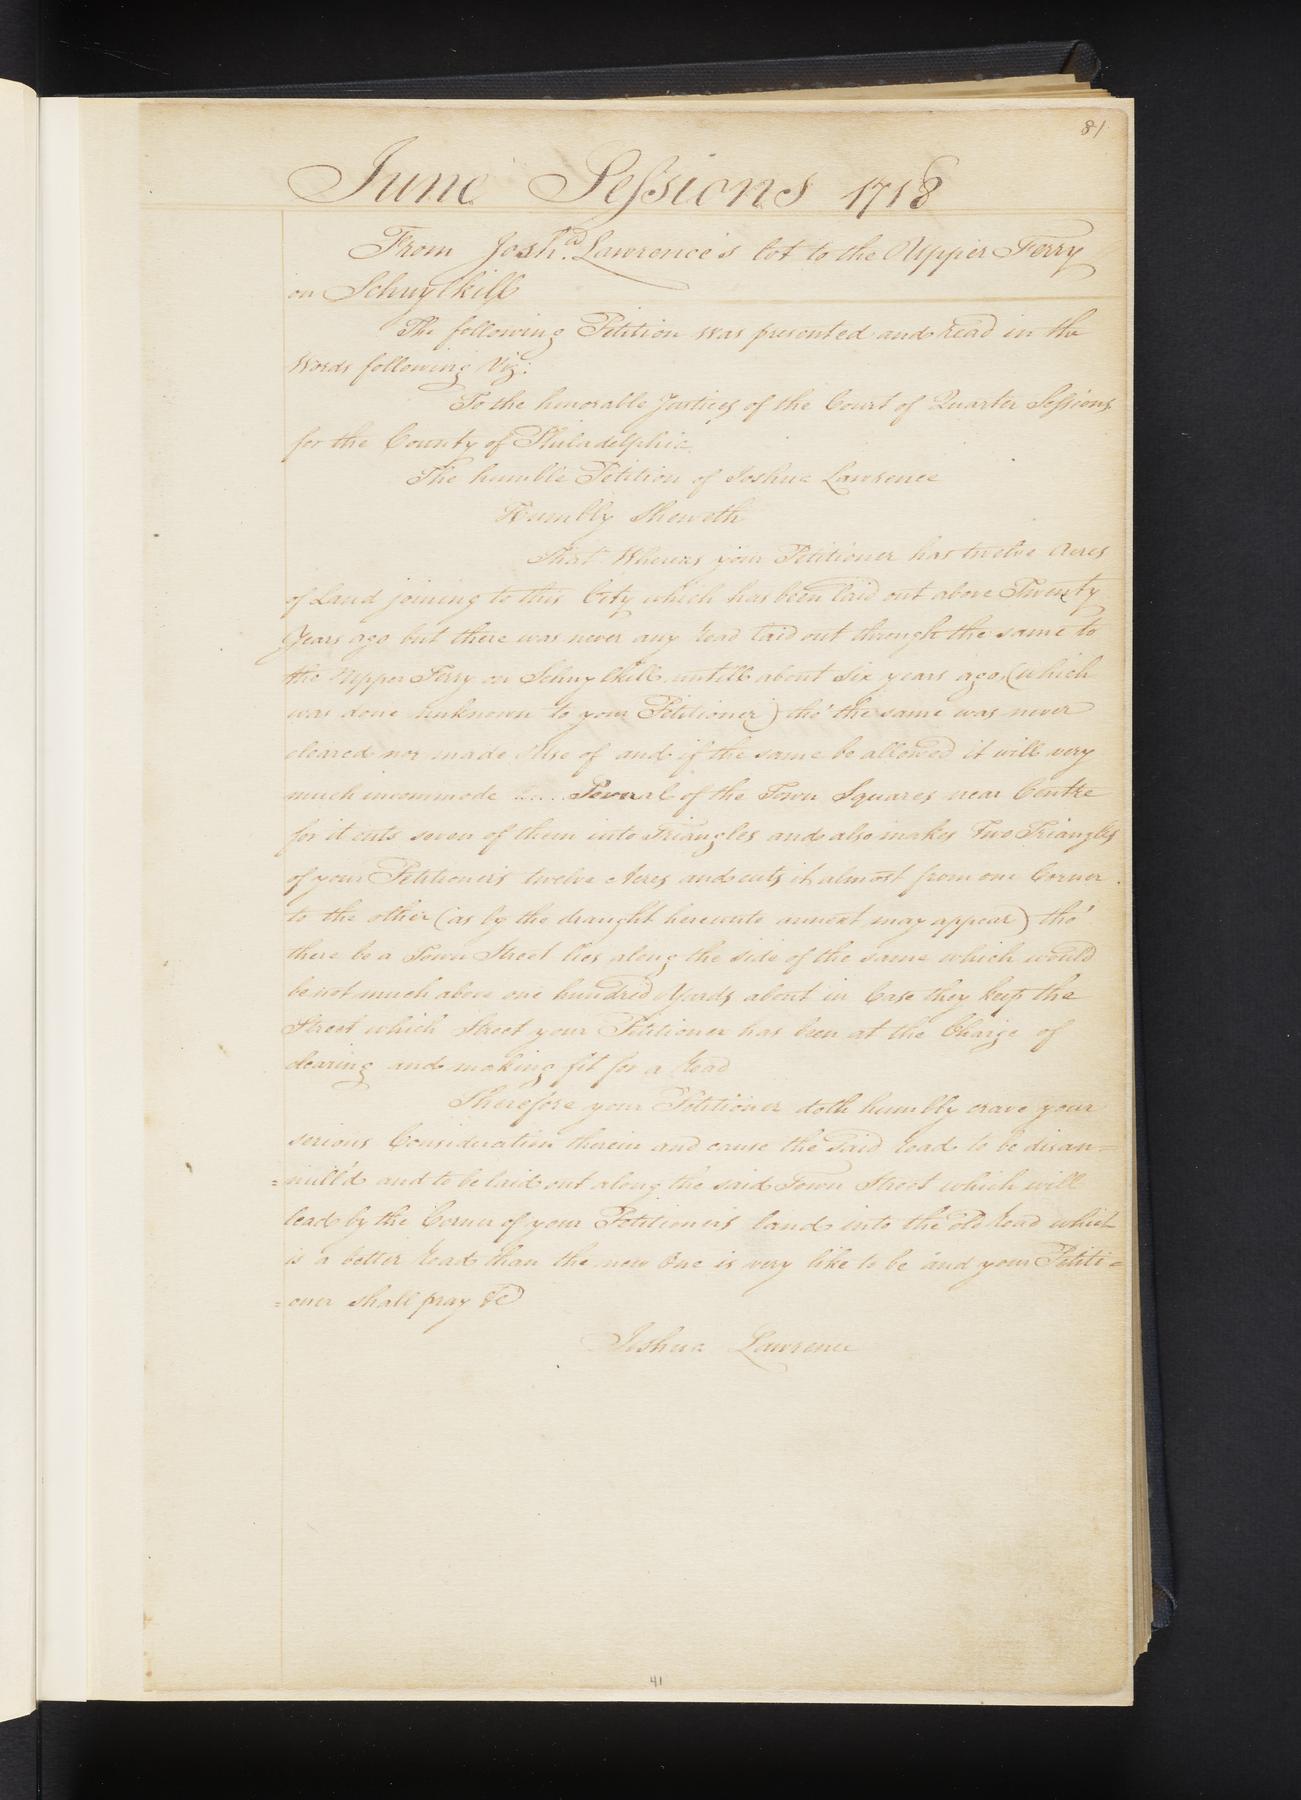 81
June Sessions 1718
From Josh.a Lawrence's lot to the Upper Ferry
on Schuylkill
The following Petition was presented and read in the
Words following Viz:
To the honorable Justices of the Court of Quarter Sessions
for the County of Philadelphia
The humble Petition of Joshua Lawrence
Humbly Sheweth
That Whereas your Petitioner has twelve Acres
of Land joining to this City which has been laid out above Twenty
Years ago but there was never any road laid out through the same to
the Upper Ferry on Schuylkill untill about six years ago, (which
was done unknown to your Petitioner) tho' the same was never
cleared nor made Use of and if the same be allowed it will very
much incommode ..... Several of the Town Squares near Centre
for it cuts seven of them into Triangles and also makes Two Triangles
of your Petitioner's twelve Acres and cuts it almost from one Corner
to the other (as by the draught hereunto annext may appear) tho'
there be a Town Street lies along the side of the same which would
be not much above one hundred Yards about in Case they keep the
Street which Street your Petitioner has been at the Charge of
clearing and making fit for a Road
Therefore your Petitioner doth humbly crave your
serious Consideration therein and cause the said road to be disan=
=null'd and to be laid out along the said Town Street which will
lead by the Corner of your Petitioner's land into the old road which
is a better road than the new One is very like to be and your Petiti=
=oner shall pray &c
Joshua Lawrence
41